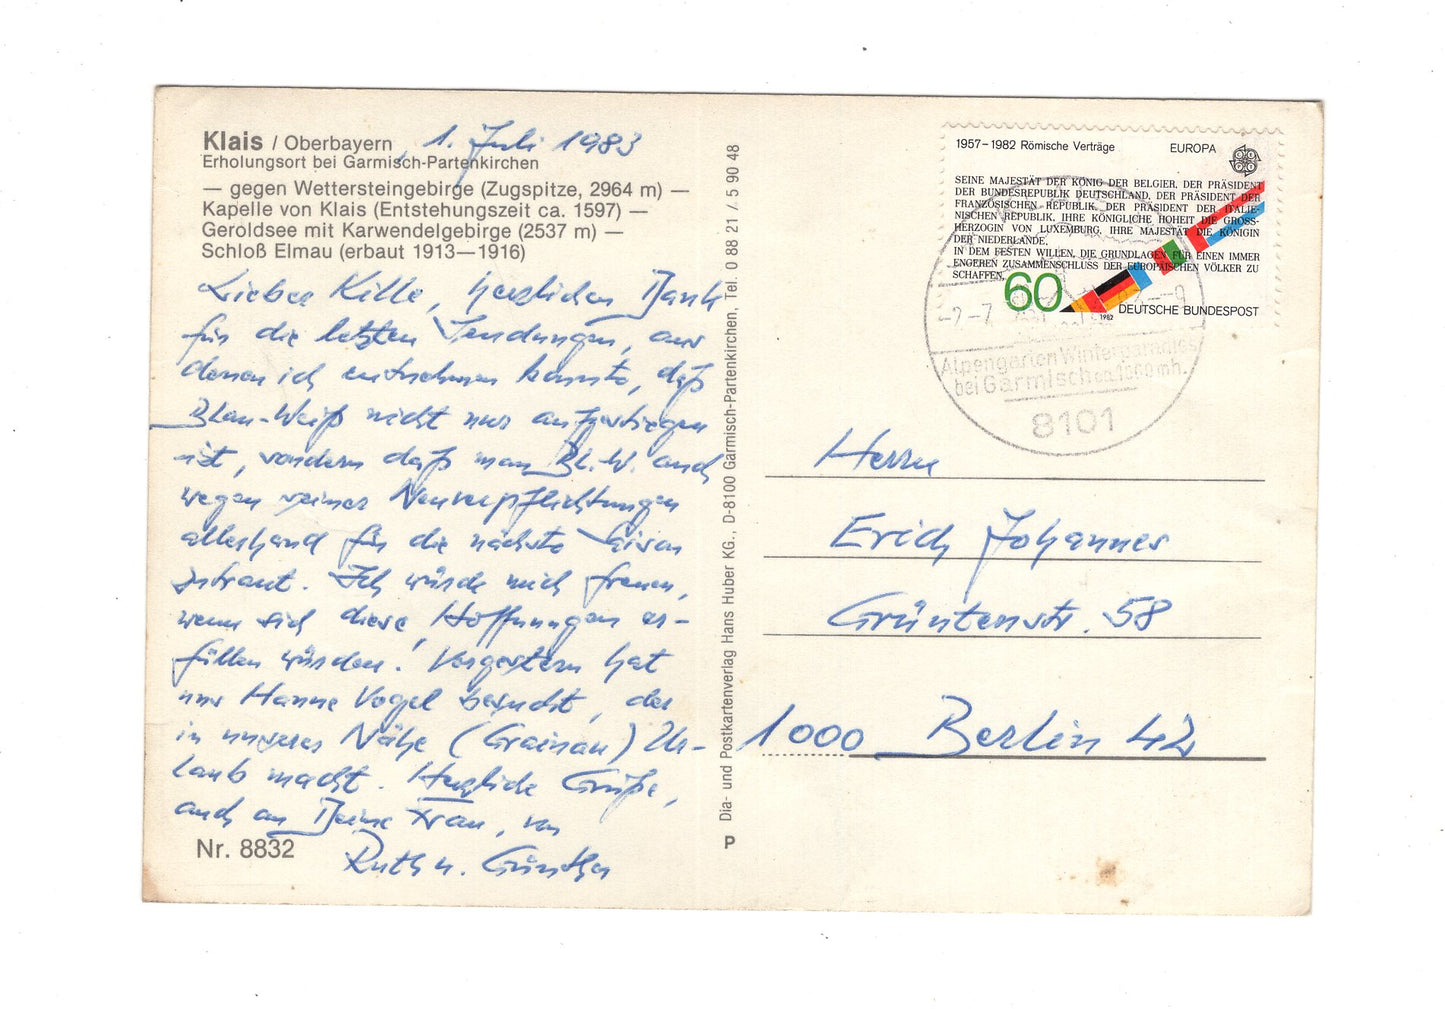 Klais / Oberbayern, 1. Juli 1983
Erholungsort bei Garmisch-Partenkirchen
— gegen Wettersteingebirge (Zugspitze, 2964 m) —
Kapelle von Klais (Entstehungszeit ca. 1597) —
Geroldsee mit Karwendelgebirge (2537 m) —
Schloß Elmau (erbaut 1913—1916)
Lieber Kille, herzlichen Dank
für die letzten Sendungen, aus
denen ich entnehmen konnte, daß
Blau-Weiß nicht nur aufgestiegen
ist, sondern daß man Bl.-W. auch
wegen seiner Neuverpflichtungen
allerhand für die nächste Saison
zutraut. Ich würde mich freuen,
wenn sich diese Hoffnungen er-
füllen würden! Vorgestern hat
uns Hanne Vogel besucht, der
in unserer Nähe (Grainau) Ur-
laub macht. Herzliche Grüße,
auch an Deine Frau, von
Ruth u. Günther
Nr. 8832
Dia- und Postkartenverlag Hans Huber KG., D-8100 Garmisch-Partenkirchen, Tel. 0 88 21 / 5 90 48
P
1957–1982 Römische Verträge EUROPA
SEINE MAJESTÄT DER KÖNIG DER BELGIER, DER PRÄSIDENT
DER BUNDESREPUBLIK DEUTSCHLAND, DER PRÄSIDENT DER
FRANZÖSISCHEN REPUBLIK, DER PRÄSIDENT DER ITALIE-
NISCHEN REPUBLIK, IHRE KÖNIGLICHE HOHEIT DIE GROSS-
HERZOGIN VON LUXEMBURG, IHRE MAJESTÄT DIE KÖNIGIN
DER NIEDERLANDE,
IN DEM FESTEN WILLEN, DIE GRUNDLAGEN FÜR EINEN IMMER
ENGEREN ZUSAMMENSCHLUSS DER EUROPÄISCHEN VÖLKER ZU
SCHAFFEN,
60
1982 DEUTSCHE BUNDESPOST
Alpengarten Winterparadies
bei Garmisch ca. 1000 mh.
8101
Herrn
Erich Johannes
Grüntenstr. 58
1000 Berlin 42